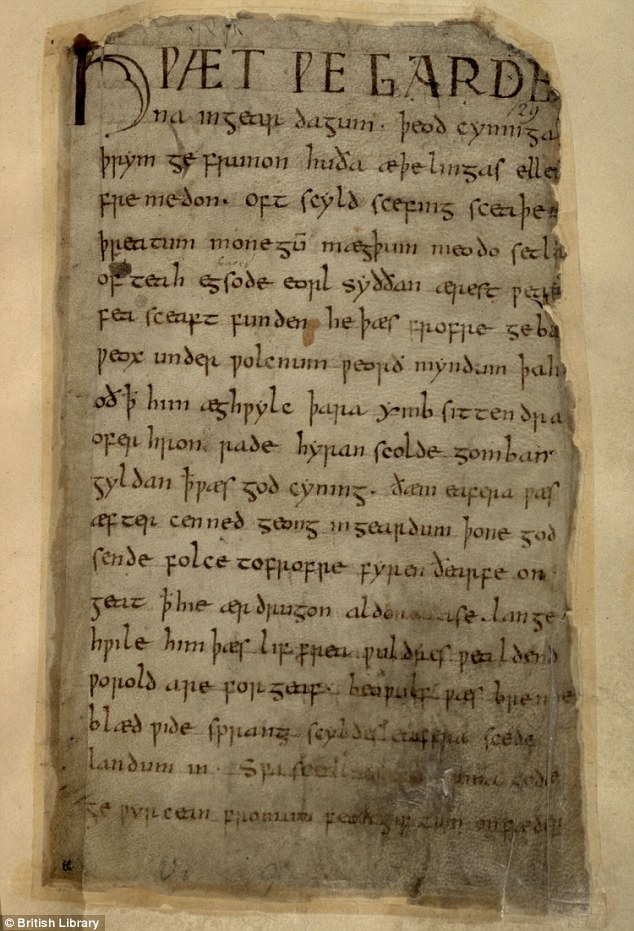 HǷÆT ǷE GARDE
129
na ingear dagum. þeod cyninga
þrym ge frunon huða æþelingas elle
fre medon. oft scyld scefing sceaþe
þreatum monegū mægþum meodo setla
of teah egsode eorl syððan ærest
fea sceaft funden he þæs frofre geba
ƿeox under ƿolcnum ƿeorð myndum þah
oð ꝥ him æghƿylc þara ymb sittendra
ofer hron rade hyran scolde gomban
gyldan ꝥ ƿæs god cyning. ðæm eafera ƿæs
æfter cenned geong ingeardum þone god
sende folce tofrofre fyren ðearfe on
geat ꝥ hie ær drugon lange
hƿile him þæs liffrea ƿuldres ƿealdend
ƿorold are for geaf. beoƿulf ƿæs breme
blæd ƿide sprang scyldes eafera scede
landum in. Sƿa guma gode
ge ƿyrcean fromum feoh giftum
© British Library